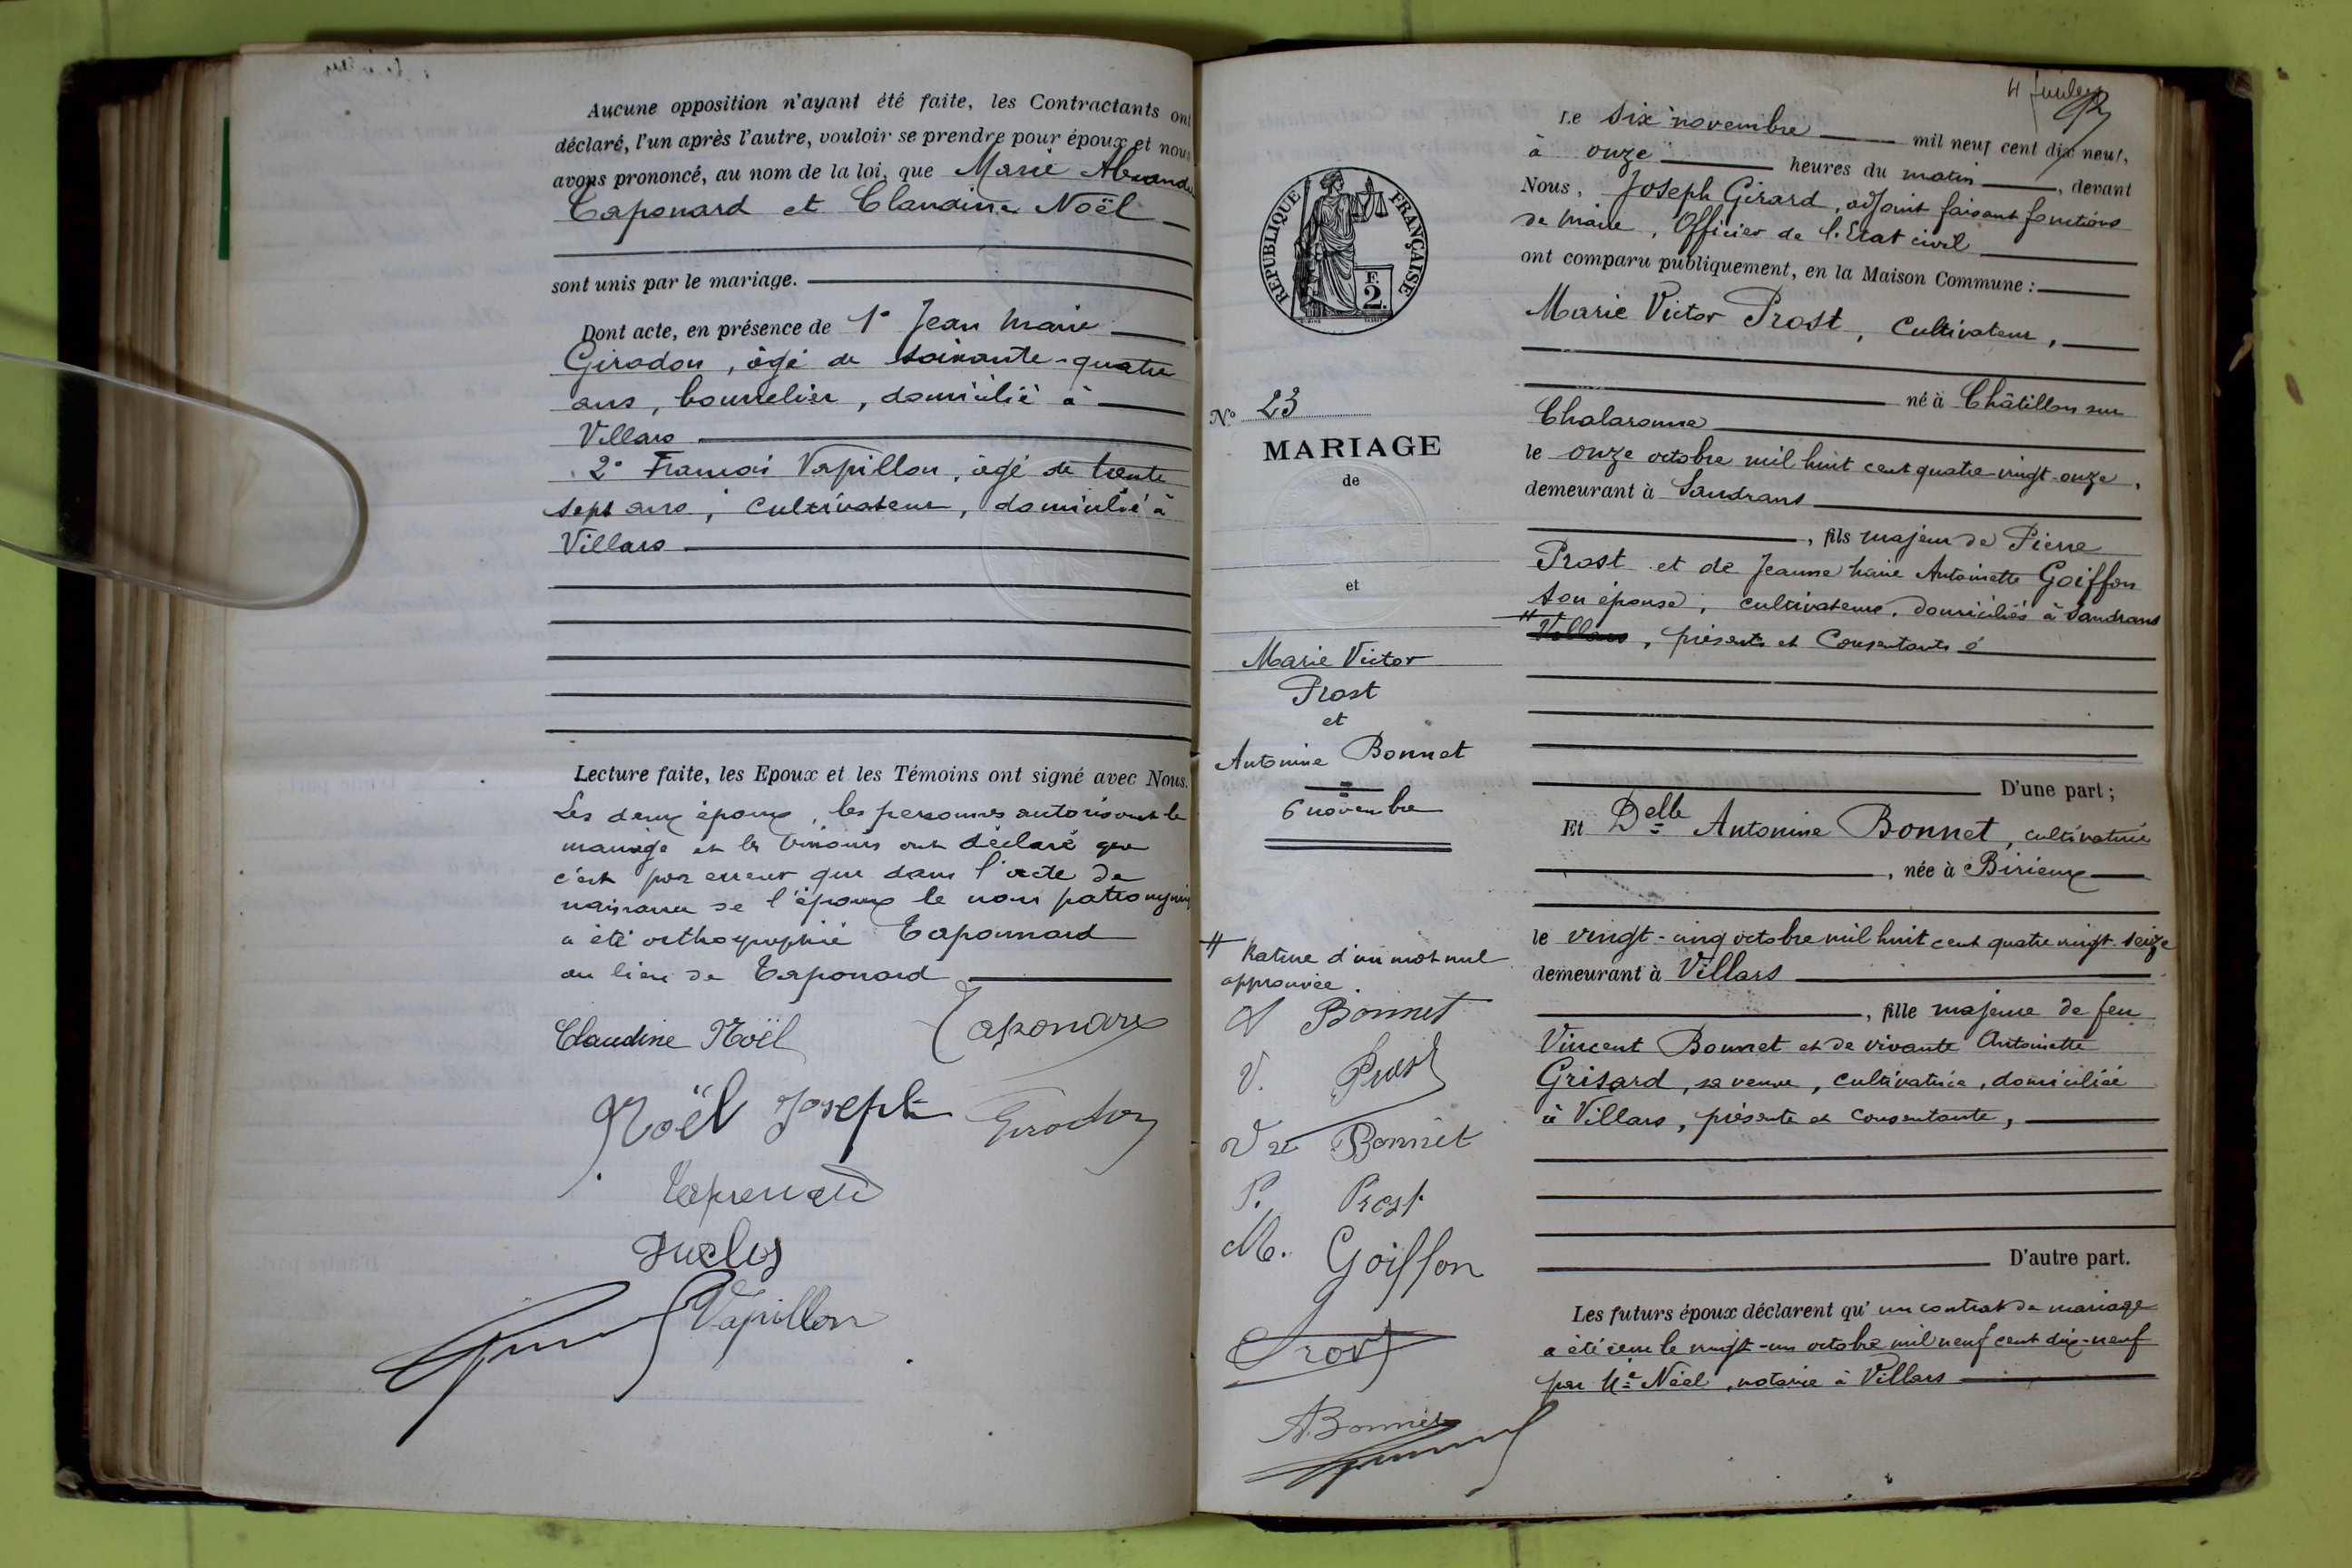 Aucune opposition n'ayant été faite, les Contractants ont
déclaré, l'un après l'autre, vouloir se prendre pour époux et nous
avons prononcé, au nom de la loi, que Marie Alexandre
Taponard et Claudine Noël
sont unis par le mariage.
Dont acte, en présence de 1° Jean Marie
Girodon, âgé de soixante-quatre
ans, bourrelier, domicilié à
Villars
2° François Vapillon, âgé de trente
sept ans, cultivateur, domicilié à
Villars
Lecture faite, les Epoux et les Témoins ont signé avec Nous.
Les deux époux, les personnes autorisant le
mariage et les témoins ont déclaré que
c'est par erreur que dans l'acte de
naissance de l'époux le nom patronymique
a été orthographié Taponnard
au lieu de Taponard
Claudine Noël Taponard
Noël Joseph Girodon
Duclos
Vapillon
REPUBLIQUE FRANÇAISE
F.
2.
N° 23
MARIAGE
de
et
Marie Victor
Prost
et
Antonine Bonnet
6 novembre
Rature d'un mot nul
approuvée
A Bonnet
V. Prost
Vve Bonnet
P. Prost
M. Goiffon
Prost
A. Bonnet
Le six novembre mil neuf cent dix neuf,
à onze heures du matin, devant
Nous, Joseph Girard, adjoint faisant fonctions
de Maire, Officier de l'Etat civil
ont comparu publiquement, en la Maison Commune :
Marie Victor Prost, Cultivateur,
né à Châtillon sur
Chalaronne
le onze octobre mil huit cent quatre-vingt-onze,
demeurant à Sandrans
, fils majeur de Pierre
Prost et de Jeanne Marie Antoinette Goiffon
son épouse, cultivateurs, domiciliés à Sandrans
Villars, présents et Consentants
D'une part ;
Et Delle Antonine Bonnet, cultivatrice
, née à Birieux
le vingt-cinq octobre mil huit cent quatre vingt-seize
demeurant à Villars
, fille majeure de feu
Vincent Bonnet et de vivante Antoinette
Grisard, sa veuve, cultivatrice, domiciliée
à Villars, présente et consentante,
D'autre part.
Les futurs époux déclarent qu'un contrat de mariage
a été reçu le vingt-un octobre mil neuf cent dix-neuf
par Me Néel, notaire à Villars